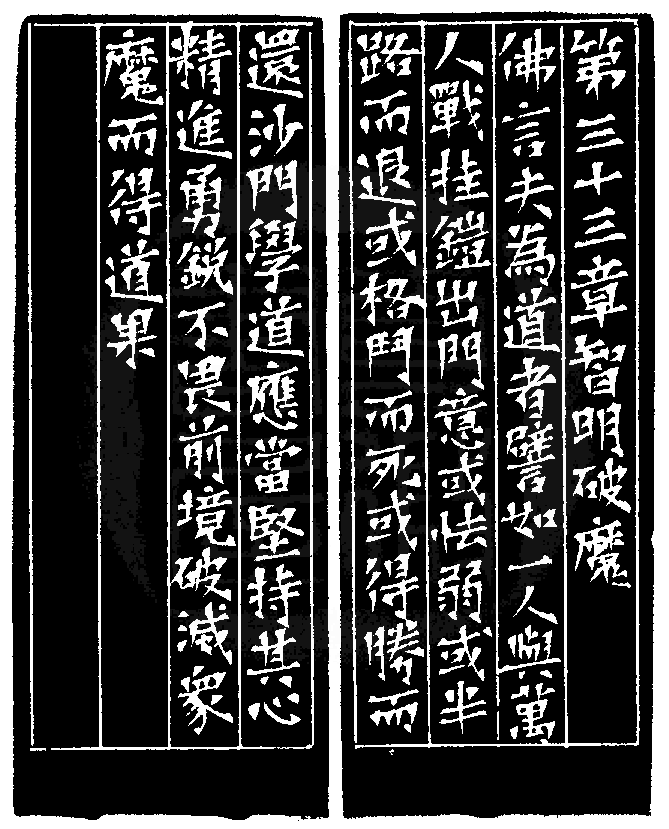 第三十三章智明破魔
佛言夫為道者譬如一人與萬
人戰挂鎧出門意或怯弱或半
路而退或格鬥而死或得勝而
還沙門學道應當堅持其心
精進勇銳不畏前境破滅眾
魔而得道果